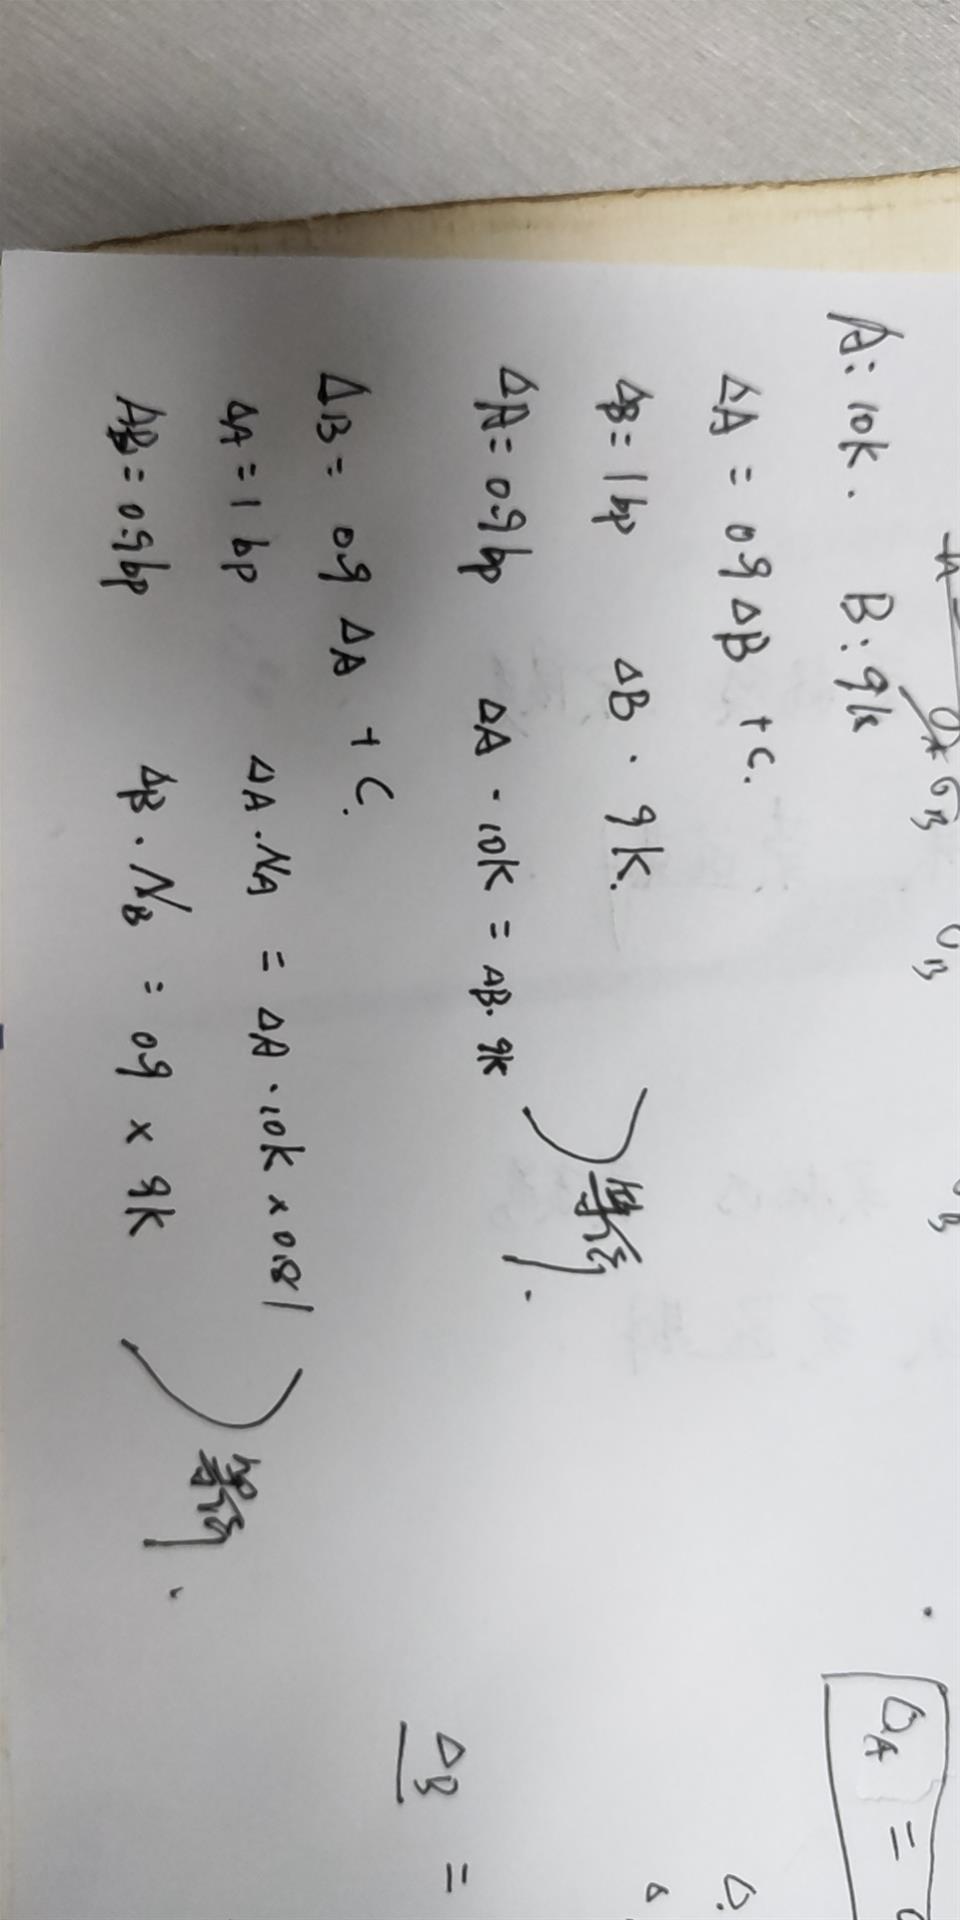 A: 10k. B: 9k
ΔA = 0.9 ΔB + C.
ΔB = 1 bp ΔB · 9k.
ΔA = 0.9 bp ΔA · 10k = ΔB · 9k
ΔB = 0.9 ΔA + C.
ΔA = 1 bp ΔA · N_A = ΔA · 10k × 0.81
ΔB = 0.9 bp ΔB · N_B = 0.9 × 9k
σ_A σ_B
σ_B
ΔB =